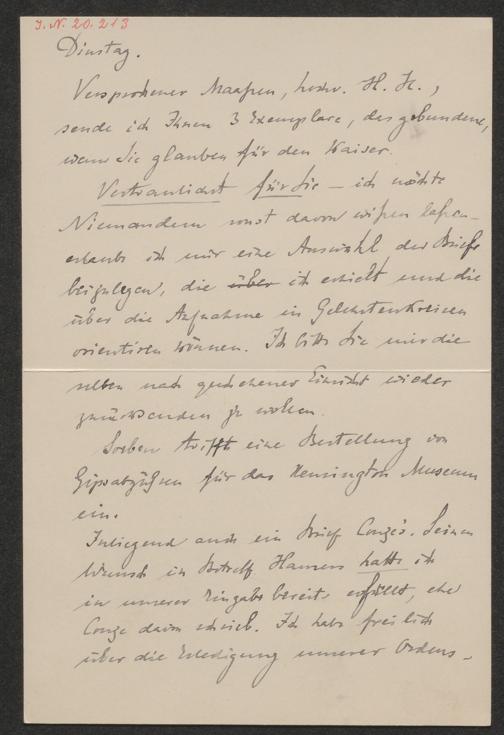 I.N. 20.213
Dienstag.
Versprochener Maaßen, hochv. H. H.,
sende ich Ihnen 3 Exemplare, das gebundene,
wenn Sie glauben für den Kaiser.
Vertraulichst für Sie – ich möchte
Niemandem sonst davon wißen laßen –
erlaube ich mir eine Auswahl der Briefe
beizulegen, die über ich erhielt und die
über die Aufnahme in Gelehrtenkreisen
orientiren können. Ich bitte Sie mir die
selben nach geschehener Einsicht wieder
zurücksenden zu wollen.
Soeben trifft eine Bestellung von
Gipsabgüßen für das Kensington Museum
ein.
Inliegend auch ein Brief Conze's. Seinen
Wunsch in Betreff Hamers hatte ich
in unserer Eingabe bereits erfüllt, ehe
Conze davon schrieb. Ich habe freilich
über die Erledigung unserer Ordens-